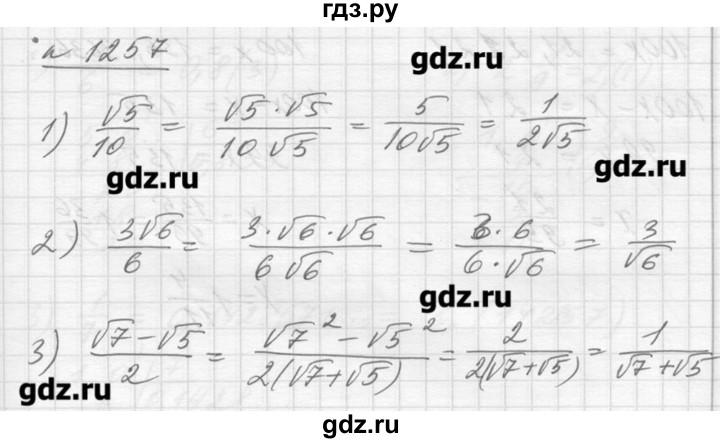 гдз.ру
№ 1257
gdz.ru
1) √5/10 = √5·√5/10√5 = 5/10√5 = 1/2√5
gdz.ru
gdz.ru
2) 3√6/6 = 3·√6·√6/6√6 = 3·6/6·√6 = 3/√6
gdz.ru
3) √7−√5/2 = √7²−√5²/2(√7+√5) = 2/2(√7+√5) = 1/√7+√5
gdz.ru
gdz.ru